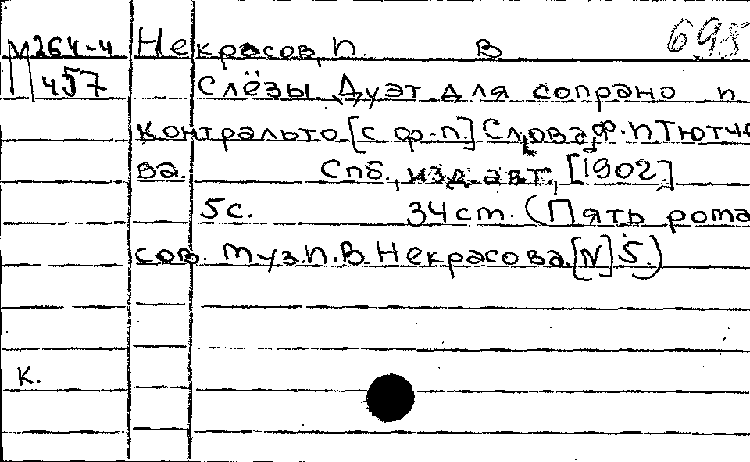 М264-4 Некрасов, П. В 695
П 457 Слёзы. Дуэт для сопрано и
контральто [с ф.-п.] Слова Ф. И. Тютче
ва. Спб., изд. авт., [1902]
5с. 34 cm. (Пять рома
сов. Муз. П. В. Некрасова. [N] 5.)
К.